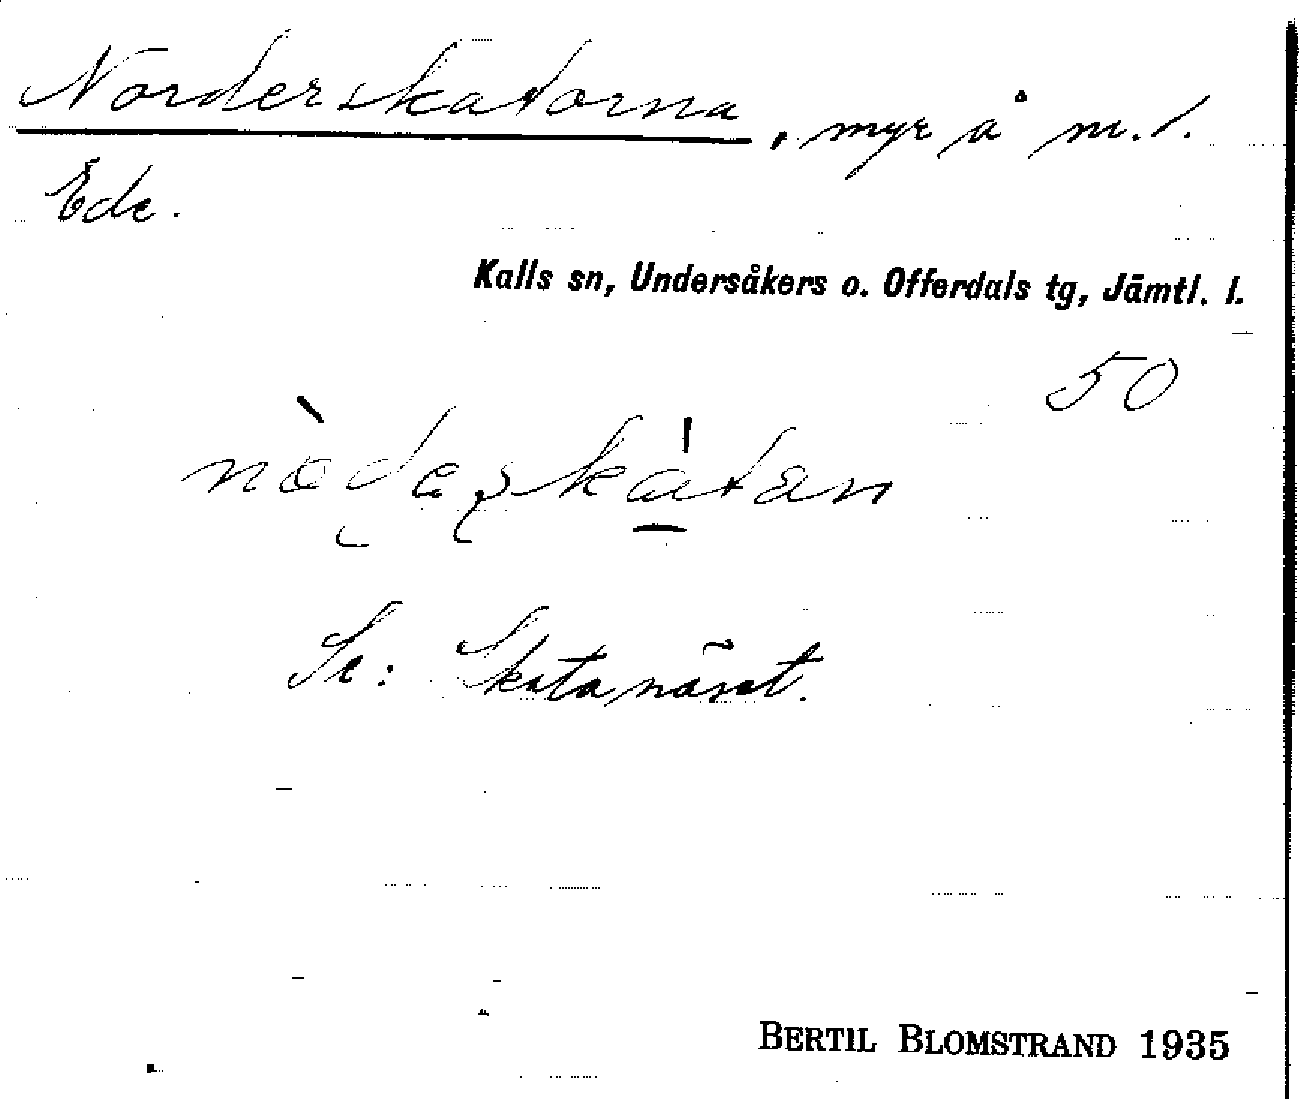 Norderskatorna, myr å nr. 1.
Ede.
Kalls sn, Undersåkers o. Offerdals tg, Jämtl. l.
50
Se: Skatanäset.
BERTIL BLOMSTRAND 1935